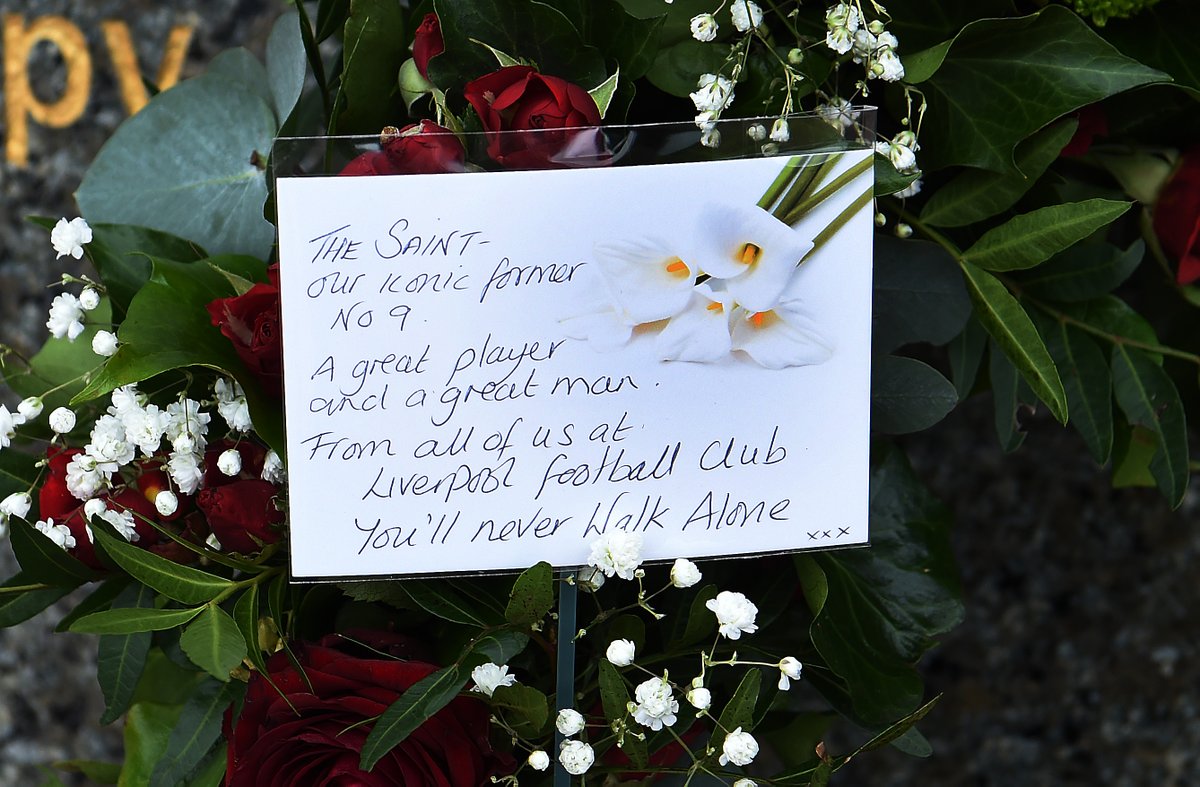 py
THE SAINT-
our iconic former
No 9.
A great player
and a great man.
From all of us at
Liverpool football Club
You'll never Walk Alone
xxx